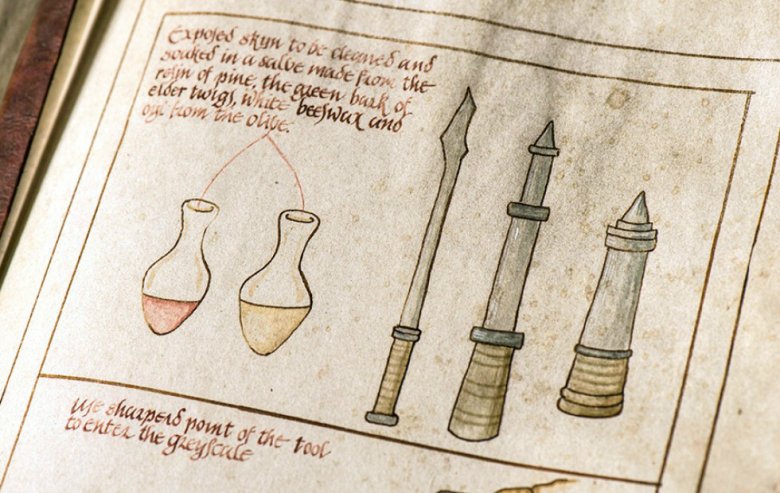 Exposed skyn to be cleaned and
soaked in a salve made from the
resin of pine, the green bark of
elder twigs, white beeswax and
oyl from the olive.
Use sharpend point of the tool
to enter the greyscale